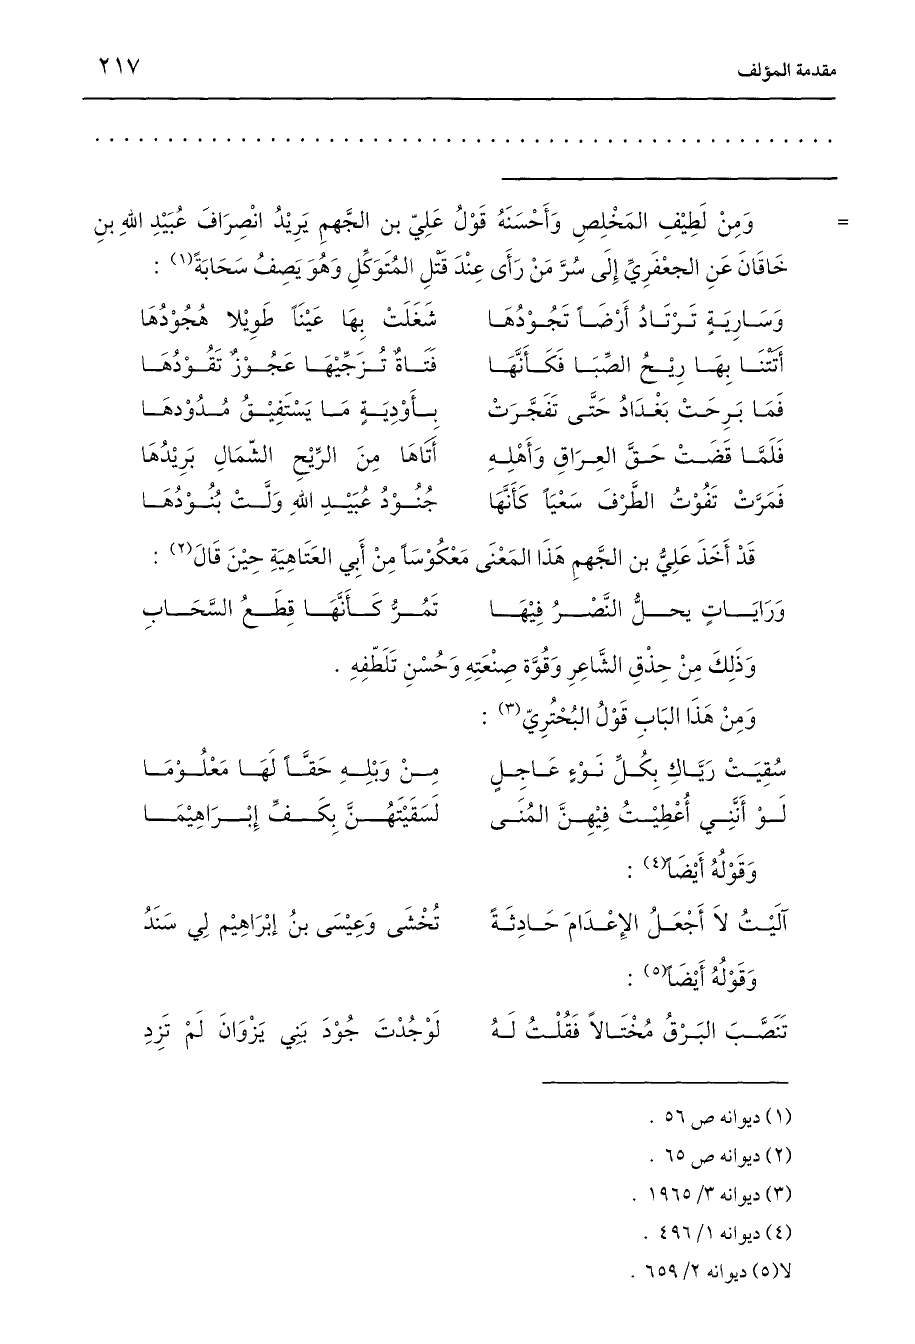 مقدمة المؤلف ٢١٧
= وَمِنْ لَطِيْفِ المَخْلِصِ وَأَحْسَنَهُ قَوْلُ عَلِيّ بن الجَّهمِ يَرِيْدُ انْصِرَافَ عُبَيْدِ اللهِ بنِ
خَاقَانَ عَنِ الجعْفَرِيِّ إِلَى سُرَّ مَنْ رَأَى عِنْدَ قَتْلِ المُتَوَكِّلِ وَهُوَ يَصِفُ سَحَابَةً(١) :
وَسَارِيَةٍ تَرْتَادُ أَرْضَاً تَجُوْدُهَا شَغَلَتْ بِهَا عَيْنَاً طَوِيْلا هُجُوْدُهَا
أَتَتْنَا بِهَا رِيْحُ الصِّبَا فَكَأَنَّهَا فَتَاةٌ تُزَجِّيْهَا عَجُوْزٌ تَقُوْدُهَا
فَمَا بَرِحَتْ بَغْدَادُ حَتَّى تَفَجَّرَتْ بِأَوْدِيَةٍ مَا يَسْتَفِيْقُ مُدُوْدهَا
فَلَمَّا قَضَتْ حَقَّ العِرَاقِ وَأَهْلِهِ أَتَاهَا مِنَ الرِّيْحِ الشّمَالِ بَرِيْدُهَا
فَمَرَّتْ تَفُوْتُ الطَّرْفَ سَعْيَاً كَأَنَّهَا جُنُوْدُ عُبَيْدِ اللهِ وَلَّتْ بُنُوْدُهَا
قَدْ أَخَذَ عَلِيُّ بن الجَّهمِ هَذَا المَعْنَى مَعْكُوْسَاً مِنْ أَبِي العَتَاهِيَةِ حِيْنَ قَالَ(٢) :
وَرَايَاتٍ يحلُّ النَّصْرُ فِيْهَا تَمُرُّ كَأَنَّهَا قِطَعُ السَّحَابِ
وَذَلِكَ مِنْ حِذْقِ الشَّاعِرِ وَقُوَّة صِنْعَتِهِ وَحُسْنِ تَلَطّفِهِ .
وَمِنْ هَذَا البَابِ قَوْلُ البُحْتُرِيّ(٣) :
سُقِيَتْ رَبَّاكِ بِكُلِّ نَوْءٍ عَاجِلٍ مِنْ وَبْلِهِ حَقَّاً لَهَا مَعْلُوْمَا
لَوْ أَنَّنِي أُعْطِيْتُ فِيْهِنَّ المُنَى لَسَقَيْتَهُنَّ بِكَفِّ إِبْرَاهِيْمَا
وَقَوْلُهُ أَيْضَاً(٤) :
آلَيْتُ لاَ أَجْعَلُ الإِعْدَامَ حَادِثَةً تُخْشَى وَعِيْسَى بنُ إِبْرَاهِيْمِ لِي سَنَدُ
وَقَوْلُهُ أَيْضَاً(٥) :
تَنَصَّبَ البَرْقُ مُخْتَالاً فَقُلْتُ لَهُ لَوْجُدْتَ جُوْدَ بَنِي يَزْوَانَ لَمْ تَزِدِ
(١) ديوانه ص ٥٦ .
(٢) ديوانه ص ٦٥ .
(٣) ديوانه ٣/ ١٩٦٥ .
(٤) ديوانه ١/ ٤٩٦ .
لا(٥) ديوانه ٢/ ٦٥٩ .